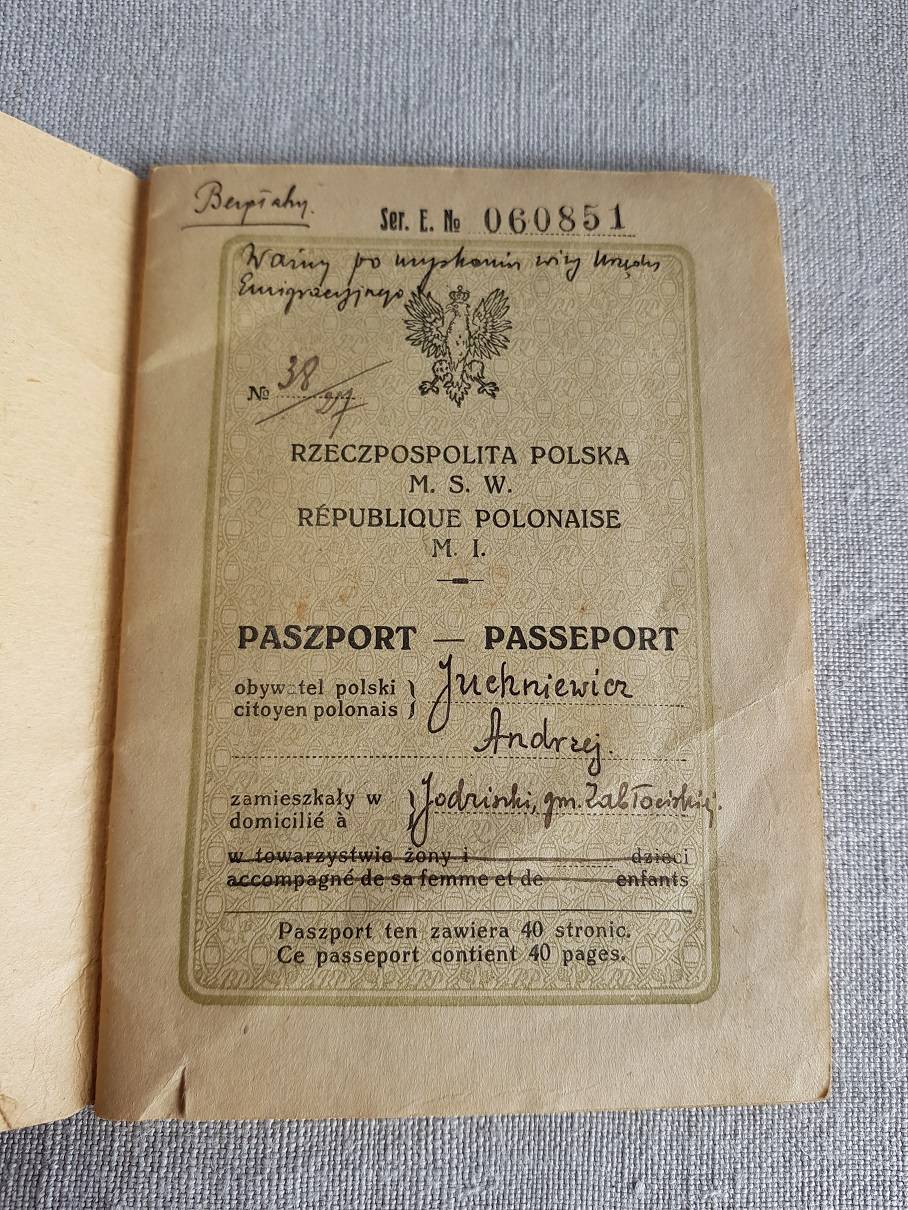 Bezpłatny.
Ser. E. № 060851
Ważny po uzyskaniu wizy Urzędu
Emigracyjnego
№ 38/27
RZECZPOSPOLITA POLSKA
M. S. W.
RÉPUBLIQUE POLONAISE
M. I.
PASZPORT — PASSEPORT
obywatel polski
citoyen polonais
Juchniewicz
Andrzej.
zamieszkały w
domicilié à
gm.
w towarzystwie żony i dzieci
accompagné de sa femme et de enfants
Paszport ten zawiera 40 stronic.
Ce passeport contient 40 pages.